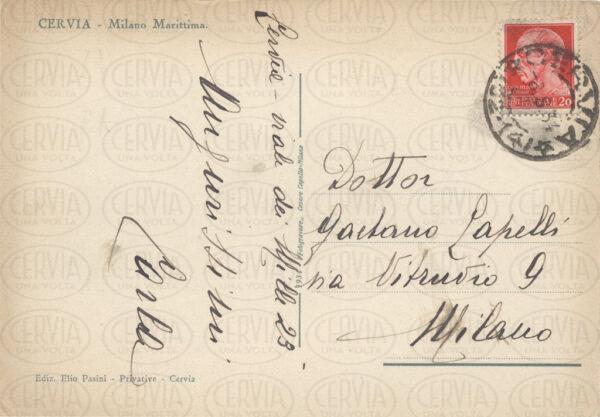 CERVIA - Milano Marittima.
Cervia - viale dei Mille 23
Augurissimi
Carla
Dottor
Gaetano Capelli
via Vitruvio 9
Milano
Ediz. Elio Pasini - Privative - Cervia
20
CERVIA
UNA VOLTA